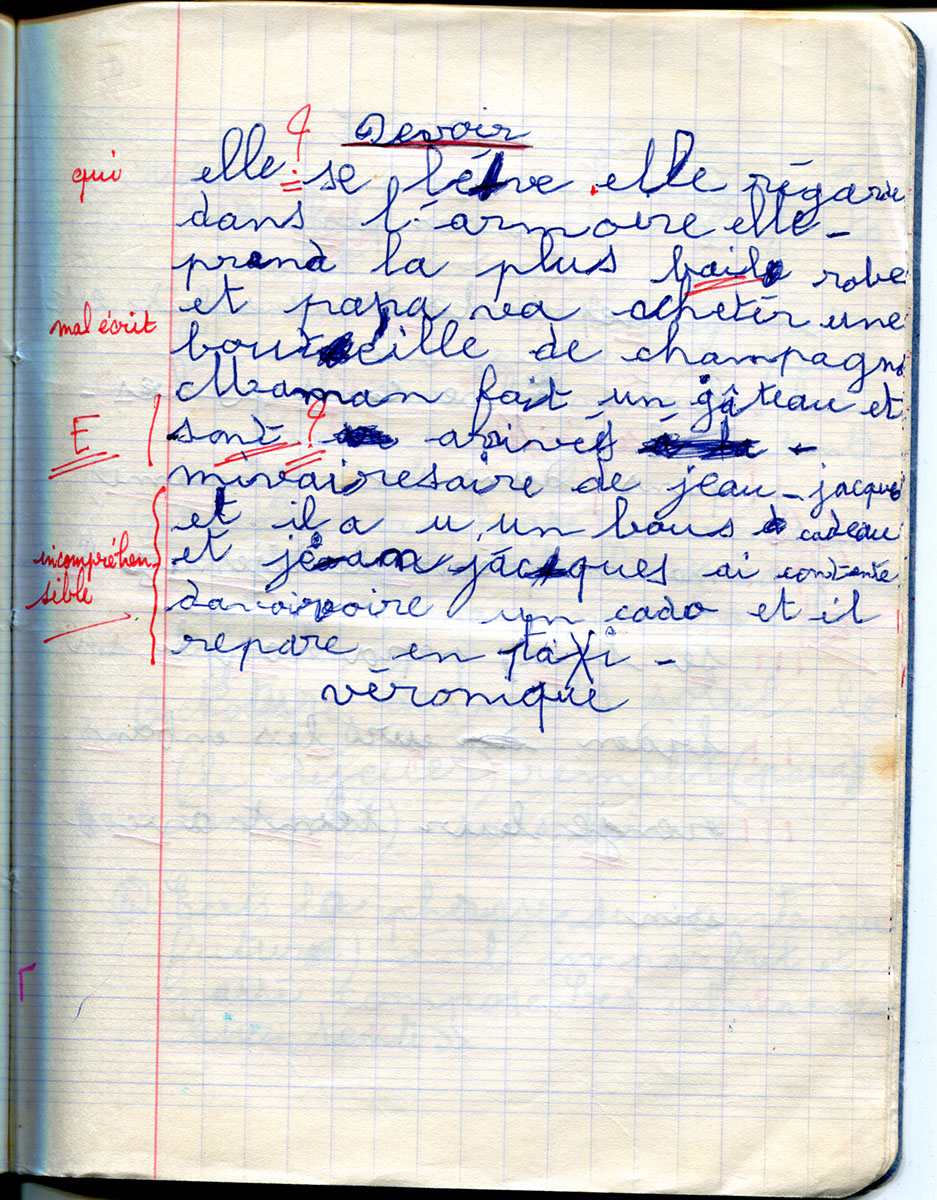 Devoir
qui ? elle se léve. elle régarde
dans l'armoire elle -
prend la plus baile robe
et papa va achetér une
mal écrit
bouteille de champagne
Maman fait un gâteau et
E sont ? arivés -
mivairesaire de jeau-jacques
et il a u un bous cadeau
incompréhensible
et jean jacques ai contente
davoir un cado et il
repare en taxi -
véronique